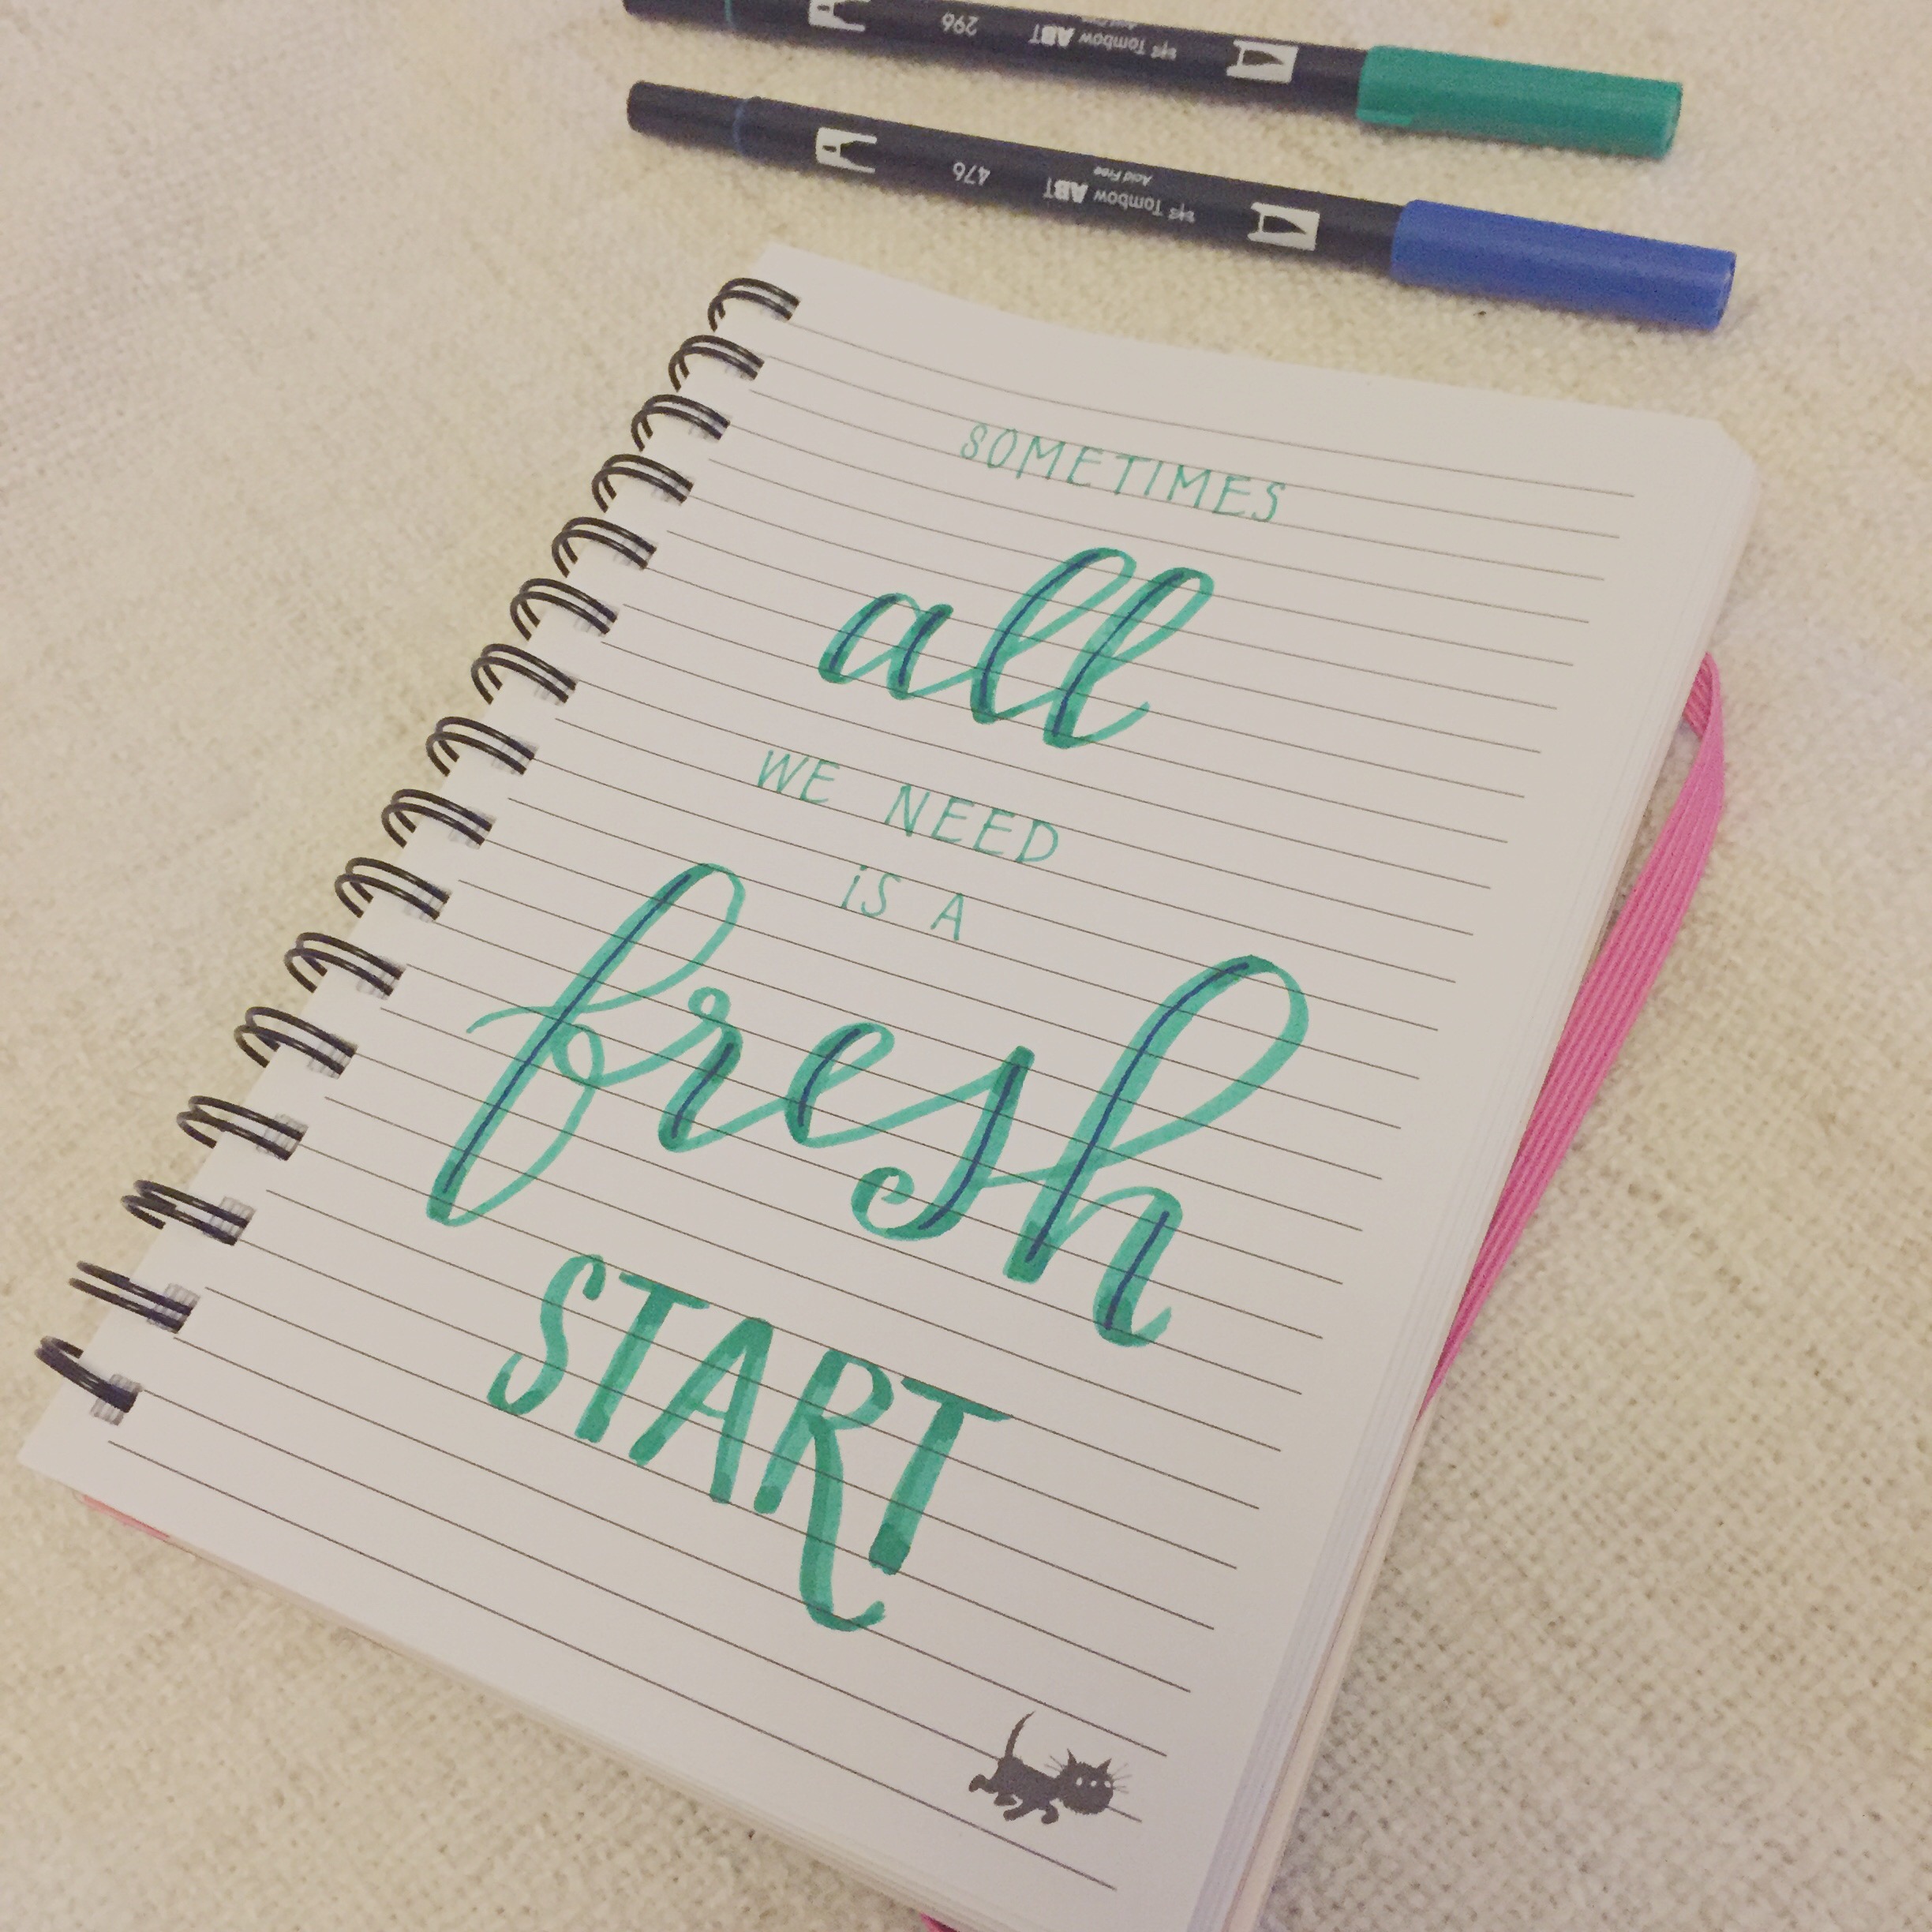 296
Tombow ABT
476
Tombow ABT
Acid Free
SOMETIMES
all
WE NEED
iS A
fresh
START